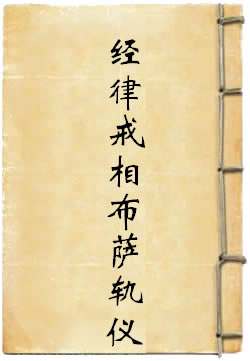 经律戒相布萨轨仪